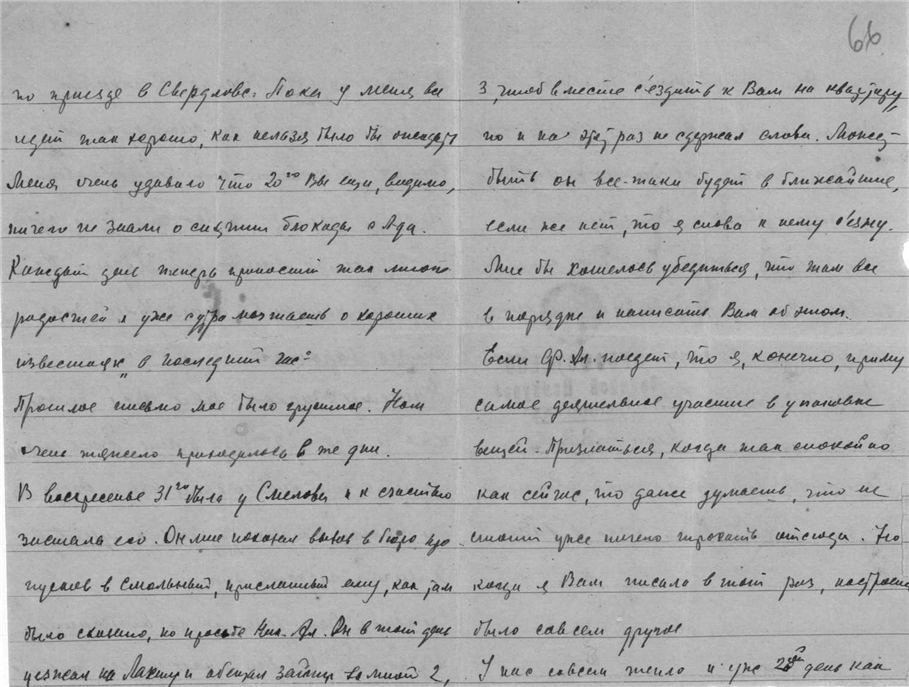 66
по приезде в Свердловс: Пока у меня все
идет так хорошо, как нельзя было бы ожидать
Меня очень удивило что 20го Вы еще, видимо,
ничего не знали о снятии блокады с Л-да.
Каждый день теперь приносит так много
радостей и уже с утра мечтаешь о хороших
известиях "в последний час"
Прошлое письмо мое было грустное. Нам
очень тяжело приходилось в те дни.
В воскресенье 31го была у Смелова и к счастью
застала его. Он мне показал вызов в бюро про
пусков в Смольный, присланный ему, как там
было сказано, по просьбе Ник. Ал. Он в тот день
уезжал на Лахту и обещал зайти за мной 2,
3, чтоб вместе съездить к Вам на квартиру,
но и на этот раз не сдержал слова. Может
быть он все-таки будет в ближайшие,
если же нет, то я снова к нему съезжу.
Мне бы хотелось убедиться, что там все
в порядке и написать Вам об этом.
Если Ф. Ал. поедет, то я, конечно, приму
самое деятельное участие в упаковке
вещей. Признаться, когда так спокойно
как сейчас, то даже думаешь, что не
стоит уже ничего трогать отсюда. Но
когда я Вам писала в тот раз, настроение
было совсем другое
У нас совсем тепло и уже день как